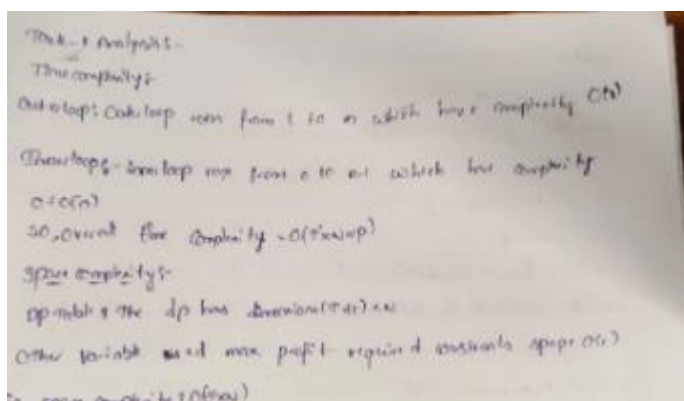 Task-1 Analysis:-
Time complexity:-
Outerloop: Outerloop runs from 1 to n which have complexity O(n)
Innerloop:- innerloop runs from 0 to n-1 which have complexity
O(n)
So, Overall time complexity = O(T×N×P)
Space complexity:-
Dp table: The dp has dimensions (T+1)×N
Other variable used max profit required constants space O(1)
space complexity: O(T×N)